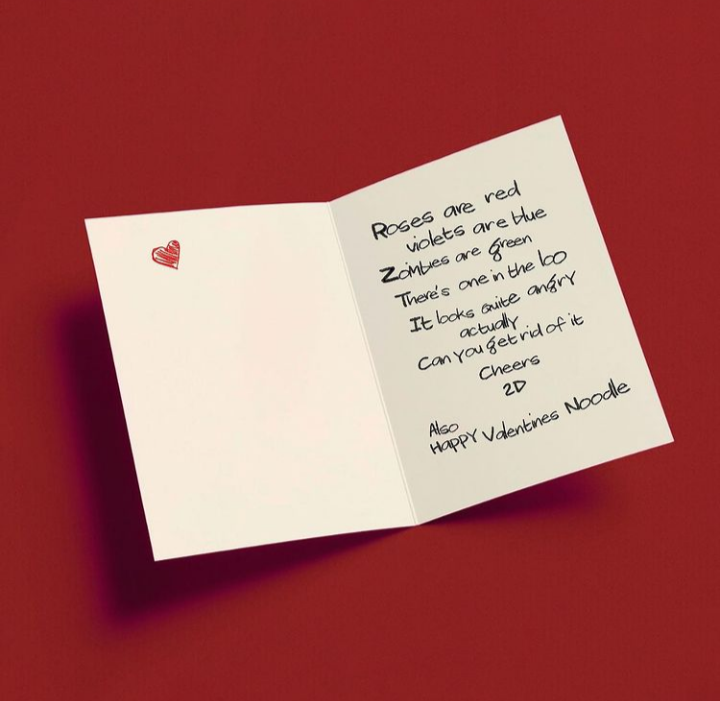 Roses are red
violets are blue
Zombies are green
There's one in the loo
It looks quite angry
actually
Can you get rid of it
Cheers
2D
Also
HAPPY Valentines Noodle